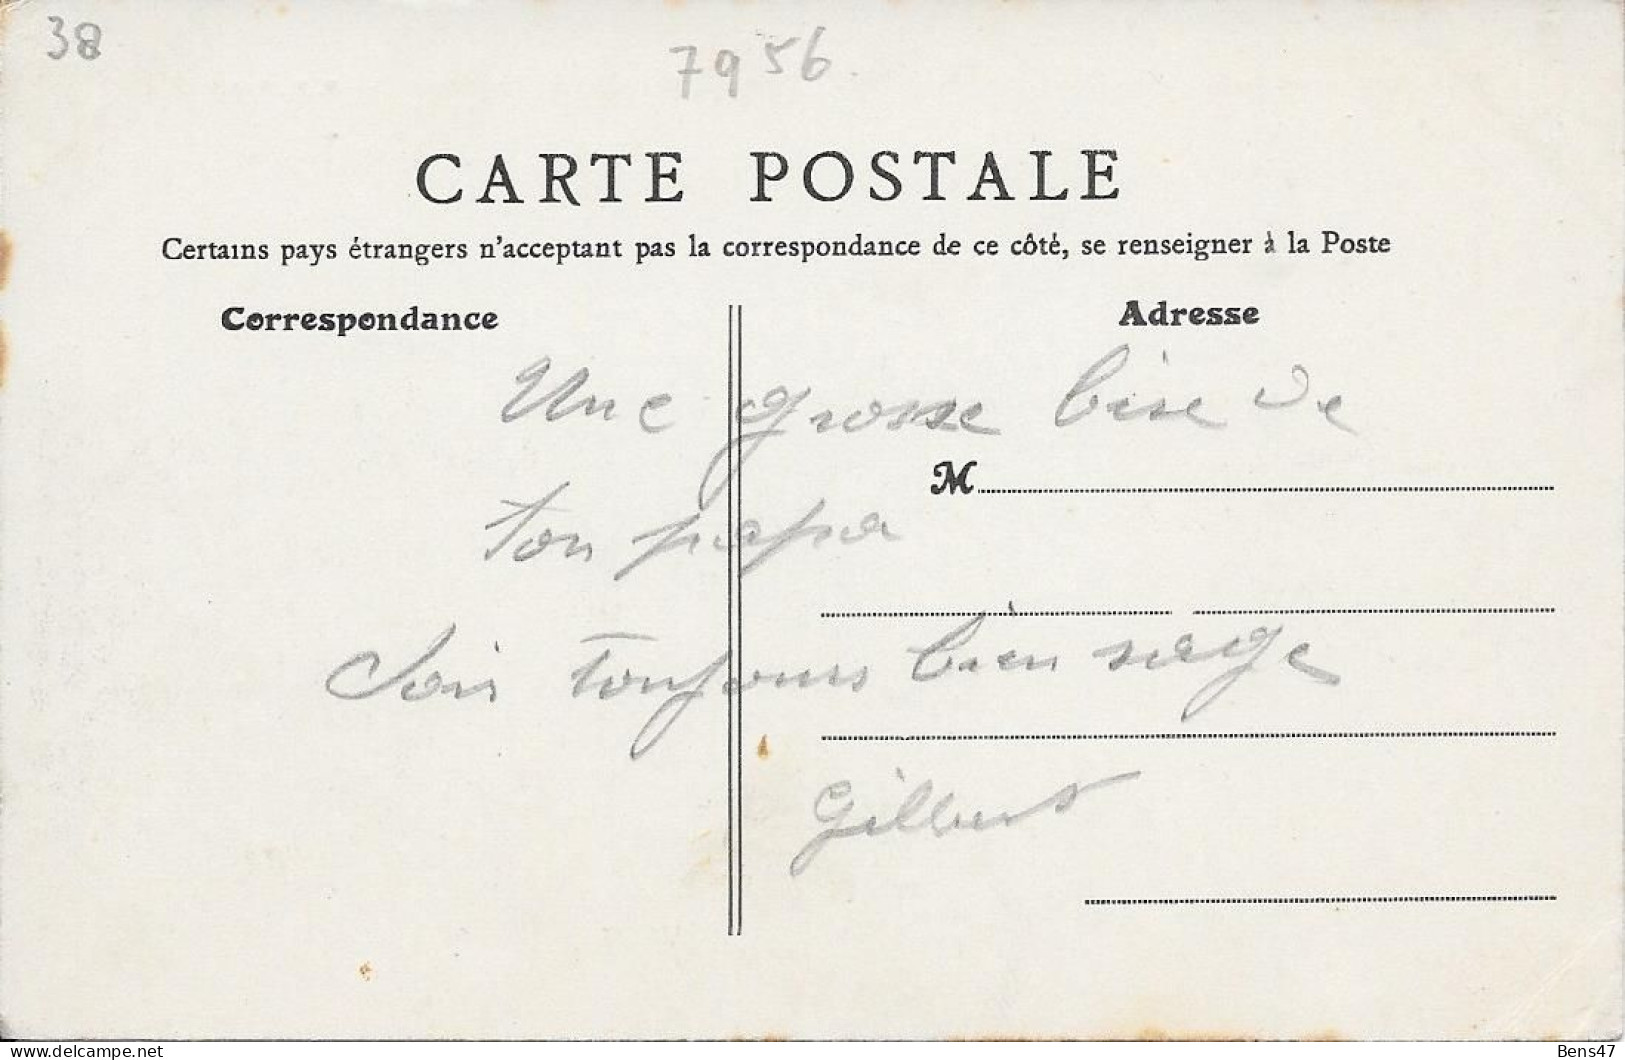 38
7956
CARTE POSTALE
Certains pays étrangers n'acceptant pas la correspondance de ce côté, se renseigner à la Poste
Correspondance
Adresse
Une grosse bise de
M
ton papa
Sois toujours bien sage
Gilbert
Bens47